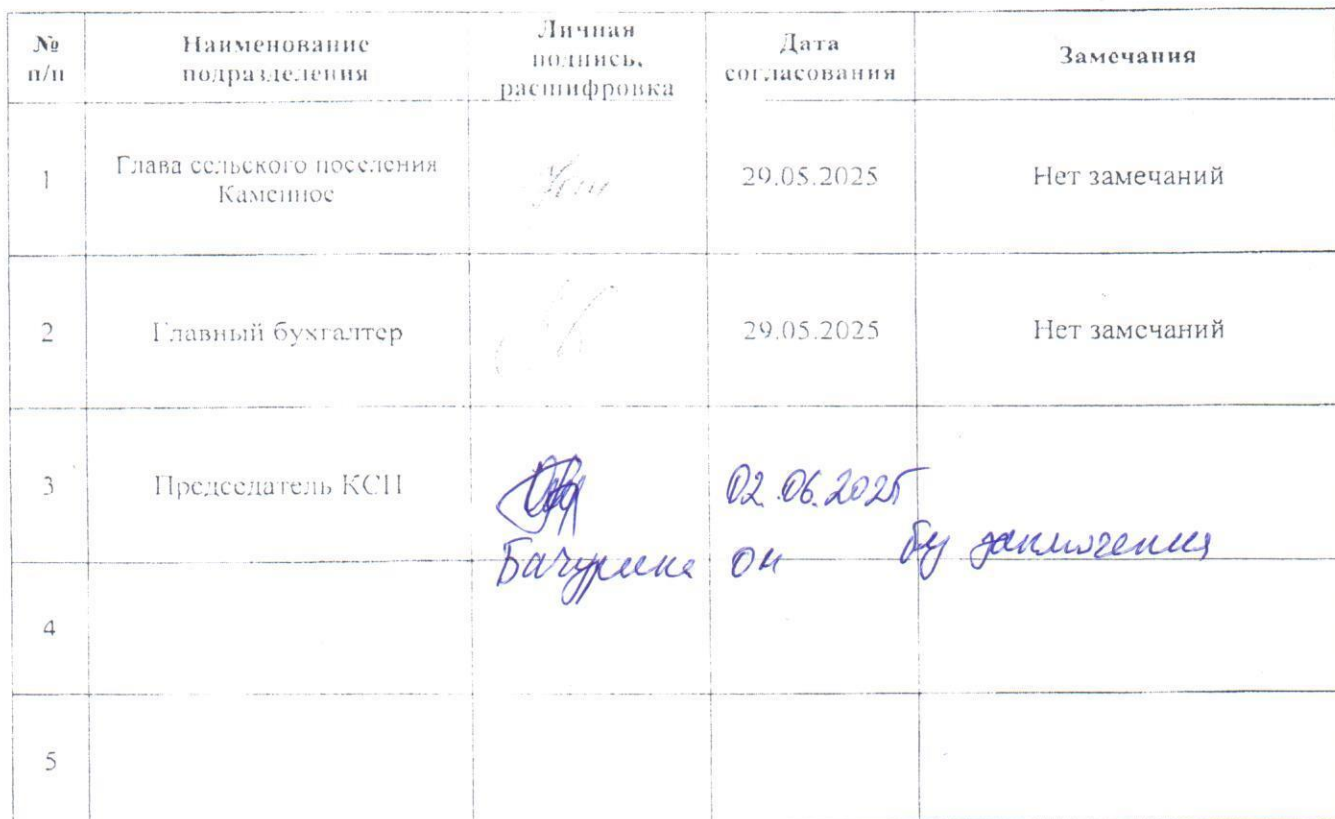 № п/п Наименование подразделения Личная подпись, расшифровка Дата согласования Замечания
1 Глава сельского поселения Каменное 29.05.2025 Нет замечаний
2 Главный бухгалтер 29.05.2025 Нет замечаний
3 Председатель КСП 02.06.2025
Бачурина ОН заключения
4
5